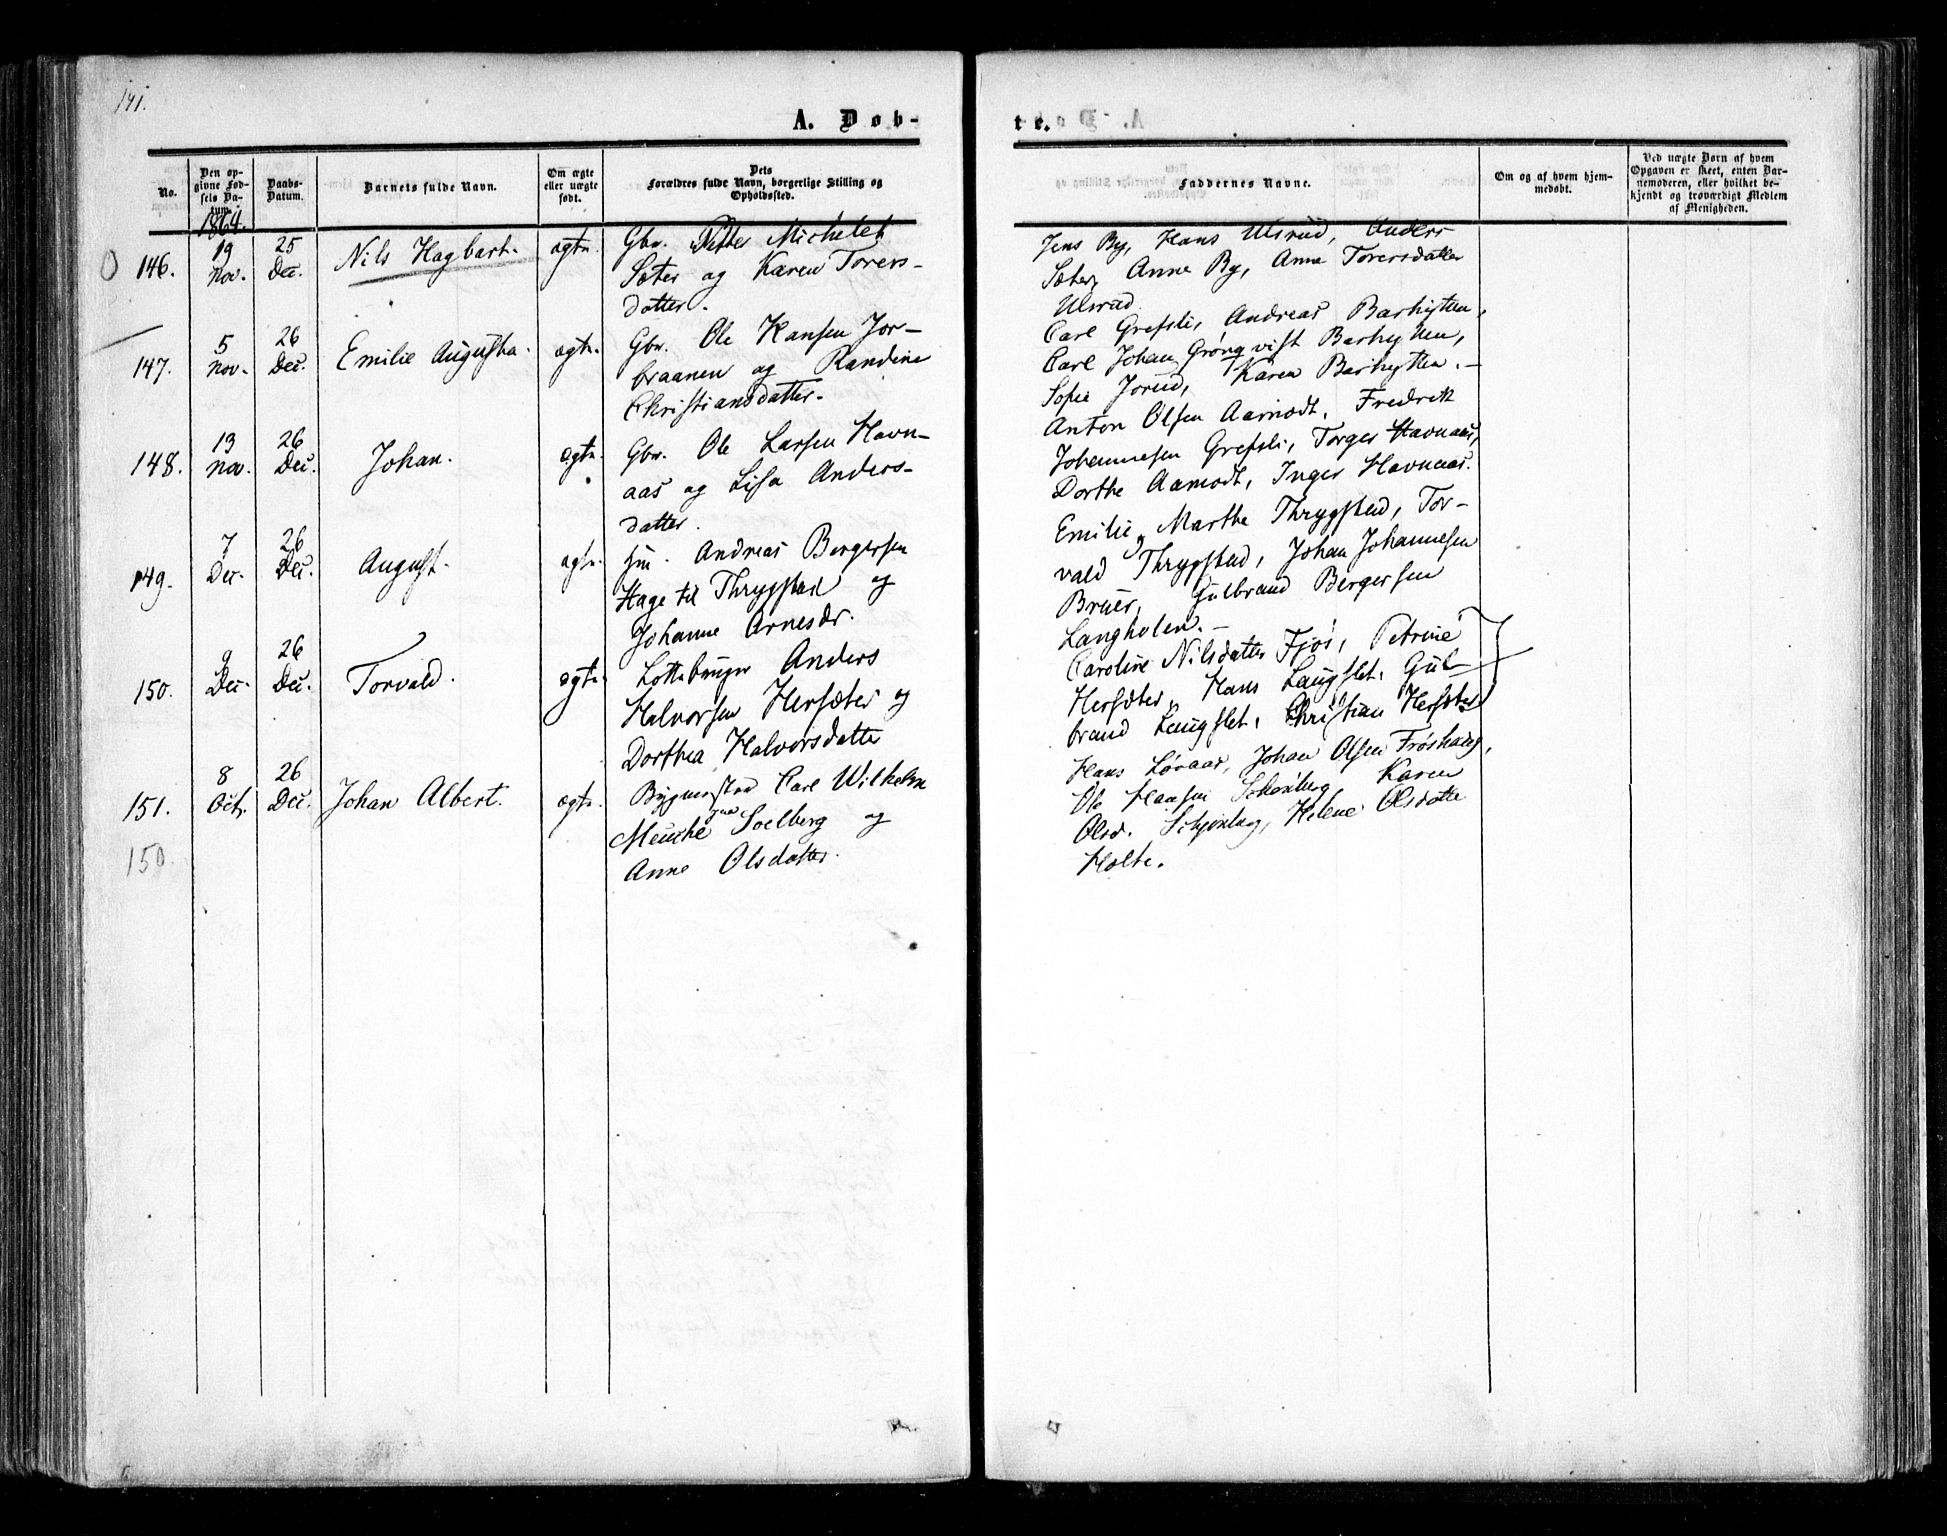 141.
A. Døb-
te.
No.
Den op-
givne Fød-
sels Da-
tum.
Daabs-
Datum.
Barnets fulde Navn.
Om ægte
eller uægte
født.
Dets
Forældres fulde Navn, borgerlige Stilling og
Opholdssted.
Faddernes Navne.
Om og af hvem hjem-
medøbt.
Ved uægte Børn af hvem
Opgaven er skeet, enten Bar-
nemoderen, eller hvilket be-
kjendt og troværdigt Medlem
af Menigheden.
1864.
146.
19
Nov.
25
Dec.
Nils Hagbart.
ægte.
Gbr. Petter Michelet
Sæter og Karen Torers-
datter.
Jens By, Hans Ulsrud, Anders
Sæter, Anne By, Anne Torersdatter
Ulsrud.
147.
5
Nov.
26
Dec.
Emilie Augusta.
ægte.
Gbr. Ole Hansen Jor-
braanen og Randine
Christiansdatter.
Carl Grefsli, Andreas Barhytten,
Carl Johan Grönqvist Barhytten,
Sofie Jorud, Karen Barhytten.-
148.
13
Nov.
26
Dec.
Johan.
ægte.
Gbr. Ole Larsen Havn-
aas og Lisa Anders-
datter.
Anton Olsen Aamodt, Fredrik
Johannesen Grefsli, Torger Havnaas,
Dorthe Aamodt, Inger Havnaas.
149.
7
Dec.
26
Dec.
August.
ægte.
Andreas Bergersen
Hage til Thrygstad og
Johanne Arnesdr.
Emilie, Marthe Thrygstad, Tor-
vald Thrygstad, Johan Johannesen
Bruer, Gulbrand Bergersen
Langholen.-
150.
9
Dec.
26
Dec.
Torvald.
ægte.
Anders
Halvorsen Hersæter og
Dorthea Halvorsdatter
Caroline Nilsdatter Fjøs, Petrine
Hersæter, Hans Laugslet, Gul-
brand Laugslet, Christian Hersæter
151.
8
Octr.
26
Dec.
Johan Albert.
ægte.
Carl Wilhelm
Meuche Soelberg og
Anne Olsdatter.
Hans Løvaas, Johan Olsen Frøshaug,
Ole Hansen Schønberg, Karen
Olsd. Schjønberg, Helene Olsdatter
Holte.
150.